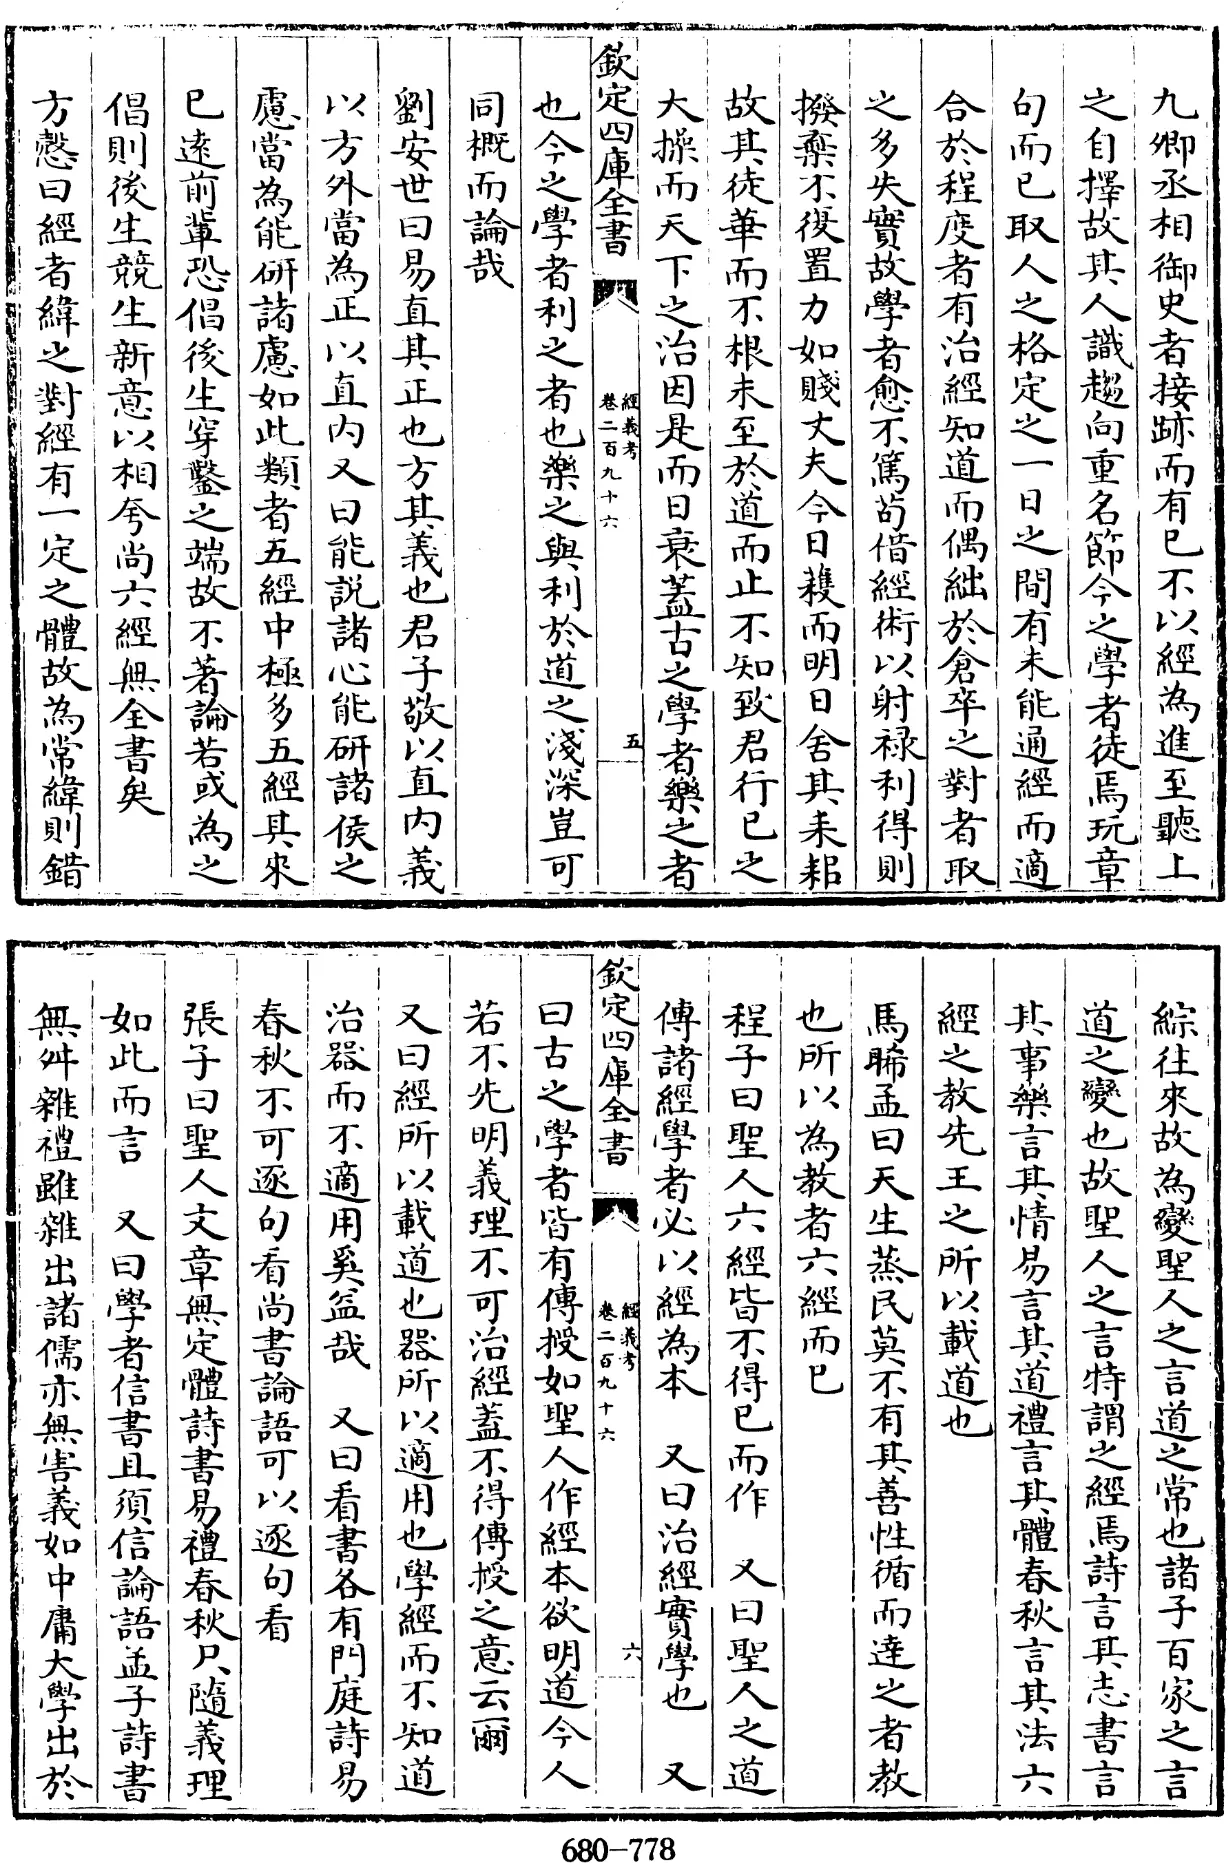 九卿丞相御史者接跡而有已不以經為進至聽上
之自擇故其人識趨向重名節今之學者徒焉玩章
句而已取人之格定之一日之間有未能通經而適
合於程度者有治經知道而偶絀於倉卒之對者取
之多失實故學者愈不篤茍借經術以射祿利得則
撥棄不復置力如賤丈夫今日穫而明日舍其耒耜
故其徒華而不根未至於道而止不知致君行已之
大操而天下之治因是而日衰蓋古之學者樂之者
欽定四庫全書
經義考
卷二百九十六
五
也今之學者利之者也樂之與利於道之淺深豈可
同概而論哉
劉安世曰易直其正也方其義也君子敬以直内義
以方外當為正以直内又曰能說諸心能研諸侯之
慮當為能研諸慮如此類者五經中極多五經其來
已逺前輩恐倡後生穿鑿之端故不著論若或為之
倡則後生競生新意以相夸尚六經無全書矣
方慤曰經者緯之對經有一定之體故為常緯則錯
綜往來故為變聖人之言道之常也諸子百家之言
道之變也故聖人之言特謂之經焉詩言其志書言
其事樂言其情易言其道禮言其體春秋言其法六
經之教先王之所以載道也
馬晞孟曰天生蒸民莫不有其善性循而達之者教
也所以為教者六經而已
程子曰聖人六經皆不得已而作　又曰聖人之道
傳諸經學者必以經為本　又曰治經實學也　又
欽定四庫全書
經義考
卷二百九十六
六
曰古之學者皆有傳授如聖人作經本欲明道今人
若不先明義理不可治經蓋不得傳授之意云爾
又曰經所以載道也器所以適用也學經而不知道
治器而不適用奚益哉　又曰看書各有門庭詩易
春秋不可逐句看尚書論語可以逐句看
張子曰聖人文章無定體詩書易禮春秋只隨義理
如此而言　又曰學者信書且須信論語孟子詩書
無舛雜禮雖雜出諸儒亦無害義如中庸大學出於
680-778